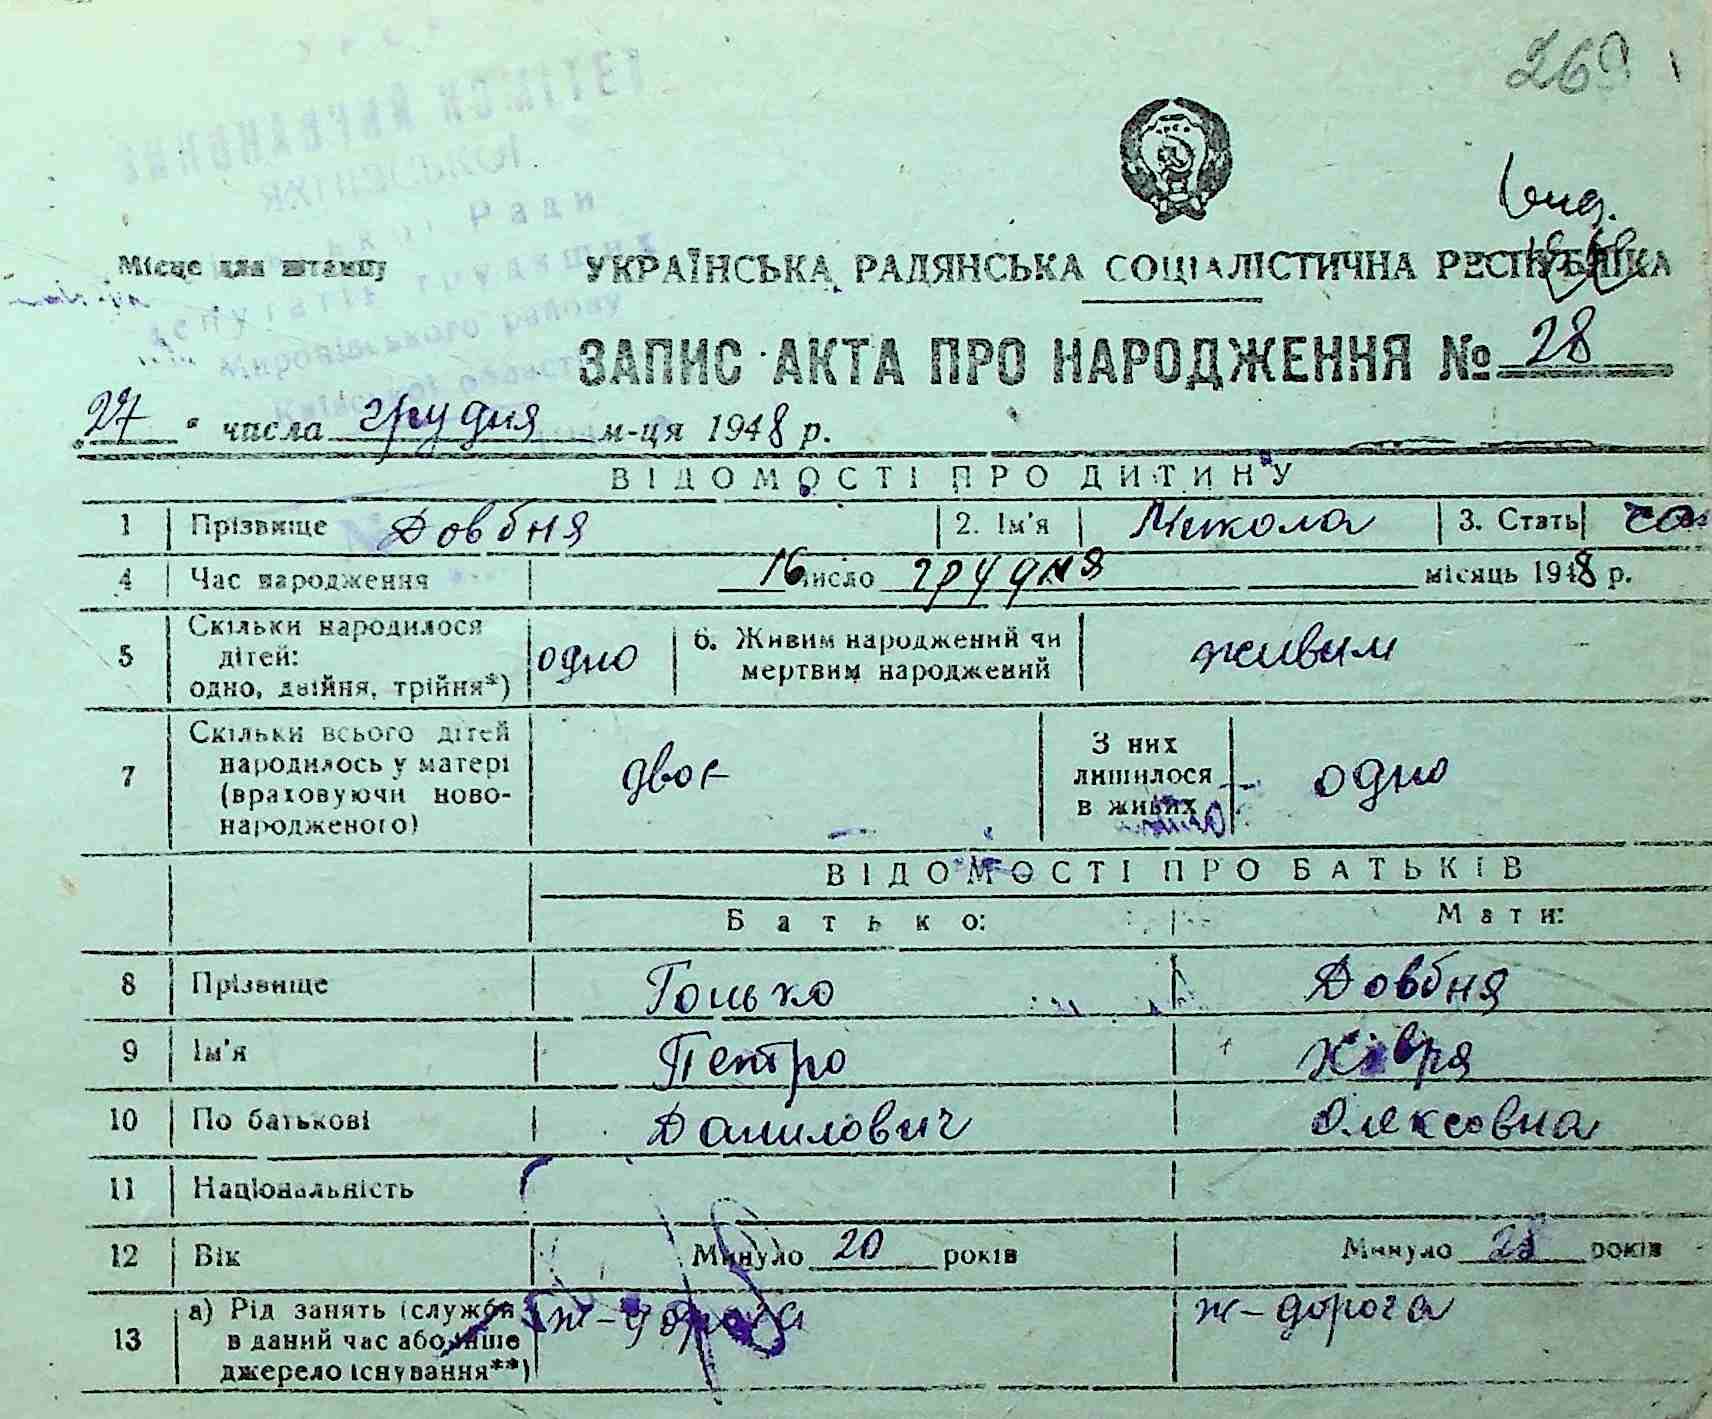 269
УРСР
ВИКОНАВЧИЙ КОМІТЕТ
Ради
депутатів трудящих
Миронівського району
Київської області
Місце для штампу
УКРАЇНСЬКА РАДЯНСЬКА СОЦІАЛІСТИЧНА РЕСПУБЛІКА
ЗАПИС АКТА ПРО НАРОДЖЕННЯ № 28
27 " числа грудня м-ця 1948 р.
ВІДОМОСТІ ПРО ДИТИНУ
1 Прізвище Довбня 2. Ім'я Микола 3. Стать
4 Час народження 16 число грудня місяць 1948 р.
5 Скільки народилося дітей: одно, двійня, трійня*) одно 6. Живим народжений чи мертвим народжений живим
7 Скільки всього дітей народилось у матері (враховуючи ново-народженого) двоє З них лишилося в живих одно
ВІДОМОСТІ ПРО БАТЬКІВ
Батько: Мати:
8 Прізвище Гонько Довбня
9 Ім'я Петро Хівря
10 По батькові Данилович Олексовна
11 Національність
12 Вік Минуло 20 років Минуло років
13 а) Рід занять (служби в даний час або інше джерело існування**) ж-дорога ж-дорога